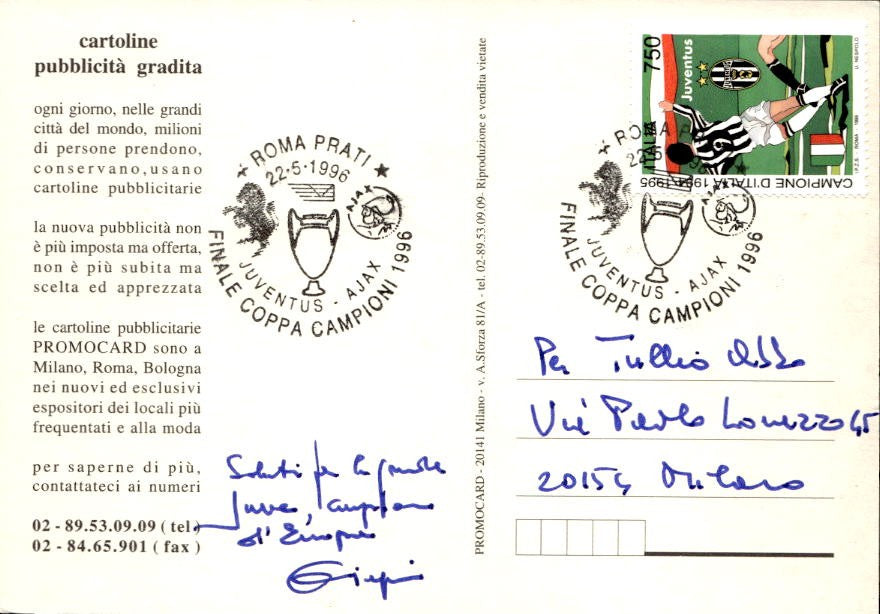 cartoline
pubblicità gradita
ogni giorno, nelle grandi
città del mondo, milioni
di persone prendono,
conservano, usano
cartoline pubblicitarie
la nuova pubblicità non
è più imposta ma offerta,
non è più subita ma
scelta ed apprezzata
le cartoline pubblicitarie
PROMOCARD sono a
Milano, Roma, Bologna
nei nuovi ed esclusivi
espositori dei locali più
frequentati e alla moda
per saperne di più,
contattateci ai numeri
02 - 89.53.09.09 ( tel )
02 - 84.65.901 ( fax )
ROMA PRATI
22·5·1996
AJAX
JUVENTUS - AJAX
FINALE COPPA CAMPIONI 1996
Saluti per la grande
Juve, campione
d'Europa
PROMOCARD - 20141 Milano - v. A.Sforza 81/A - tel. 02-89.53.09.09- Riproduzione e vendita vietate
750
Juventus
ITALIA
CAMPIONE D'ITALIA 1994-1995
I.P.Z.S. ROMA 1995
U. NESPOLO
ROMA PR
22·5 996
AJAX
JUVENTUS - AJAX
FINALE COPPA CAMPIONI 1996
Per Tullio
Via Paolo 45
20154 Milano